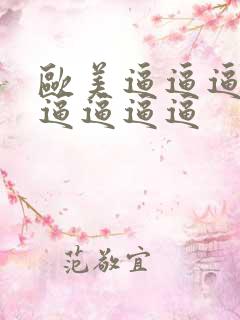 歐美逼逼逼
逼逼逼逼
范敬宜